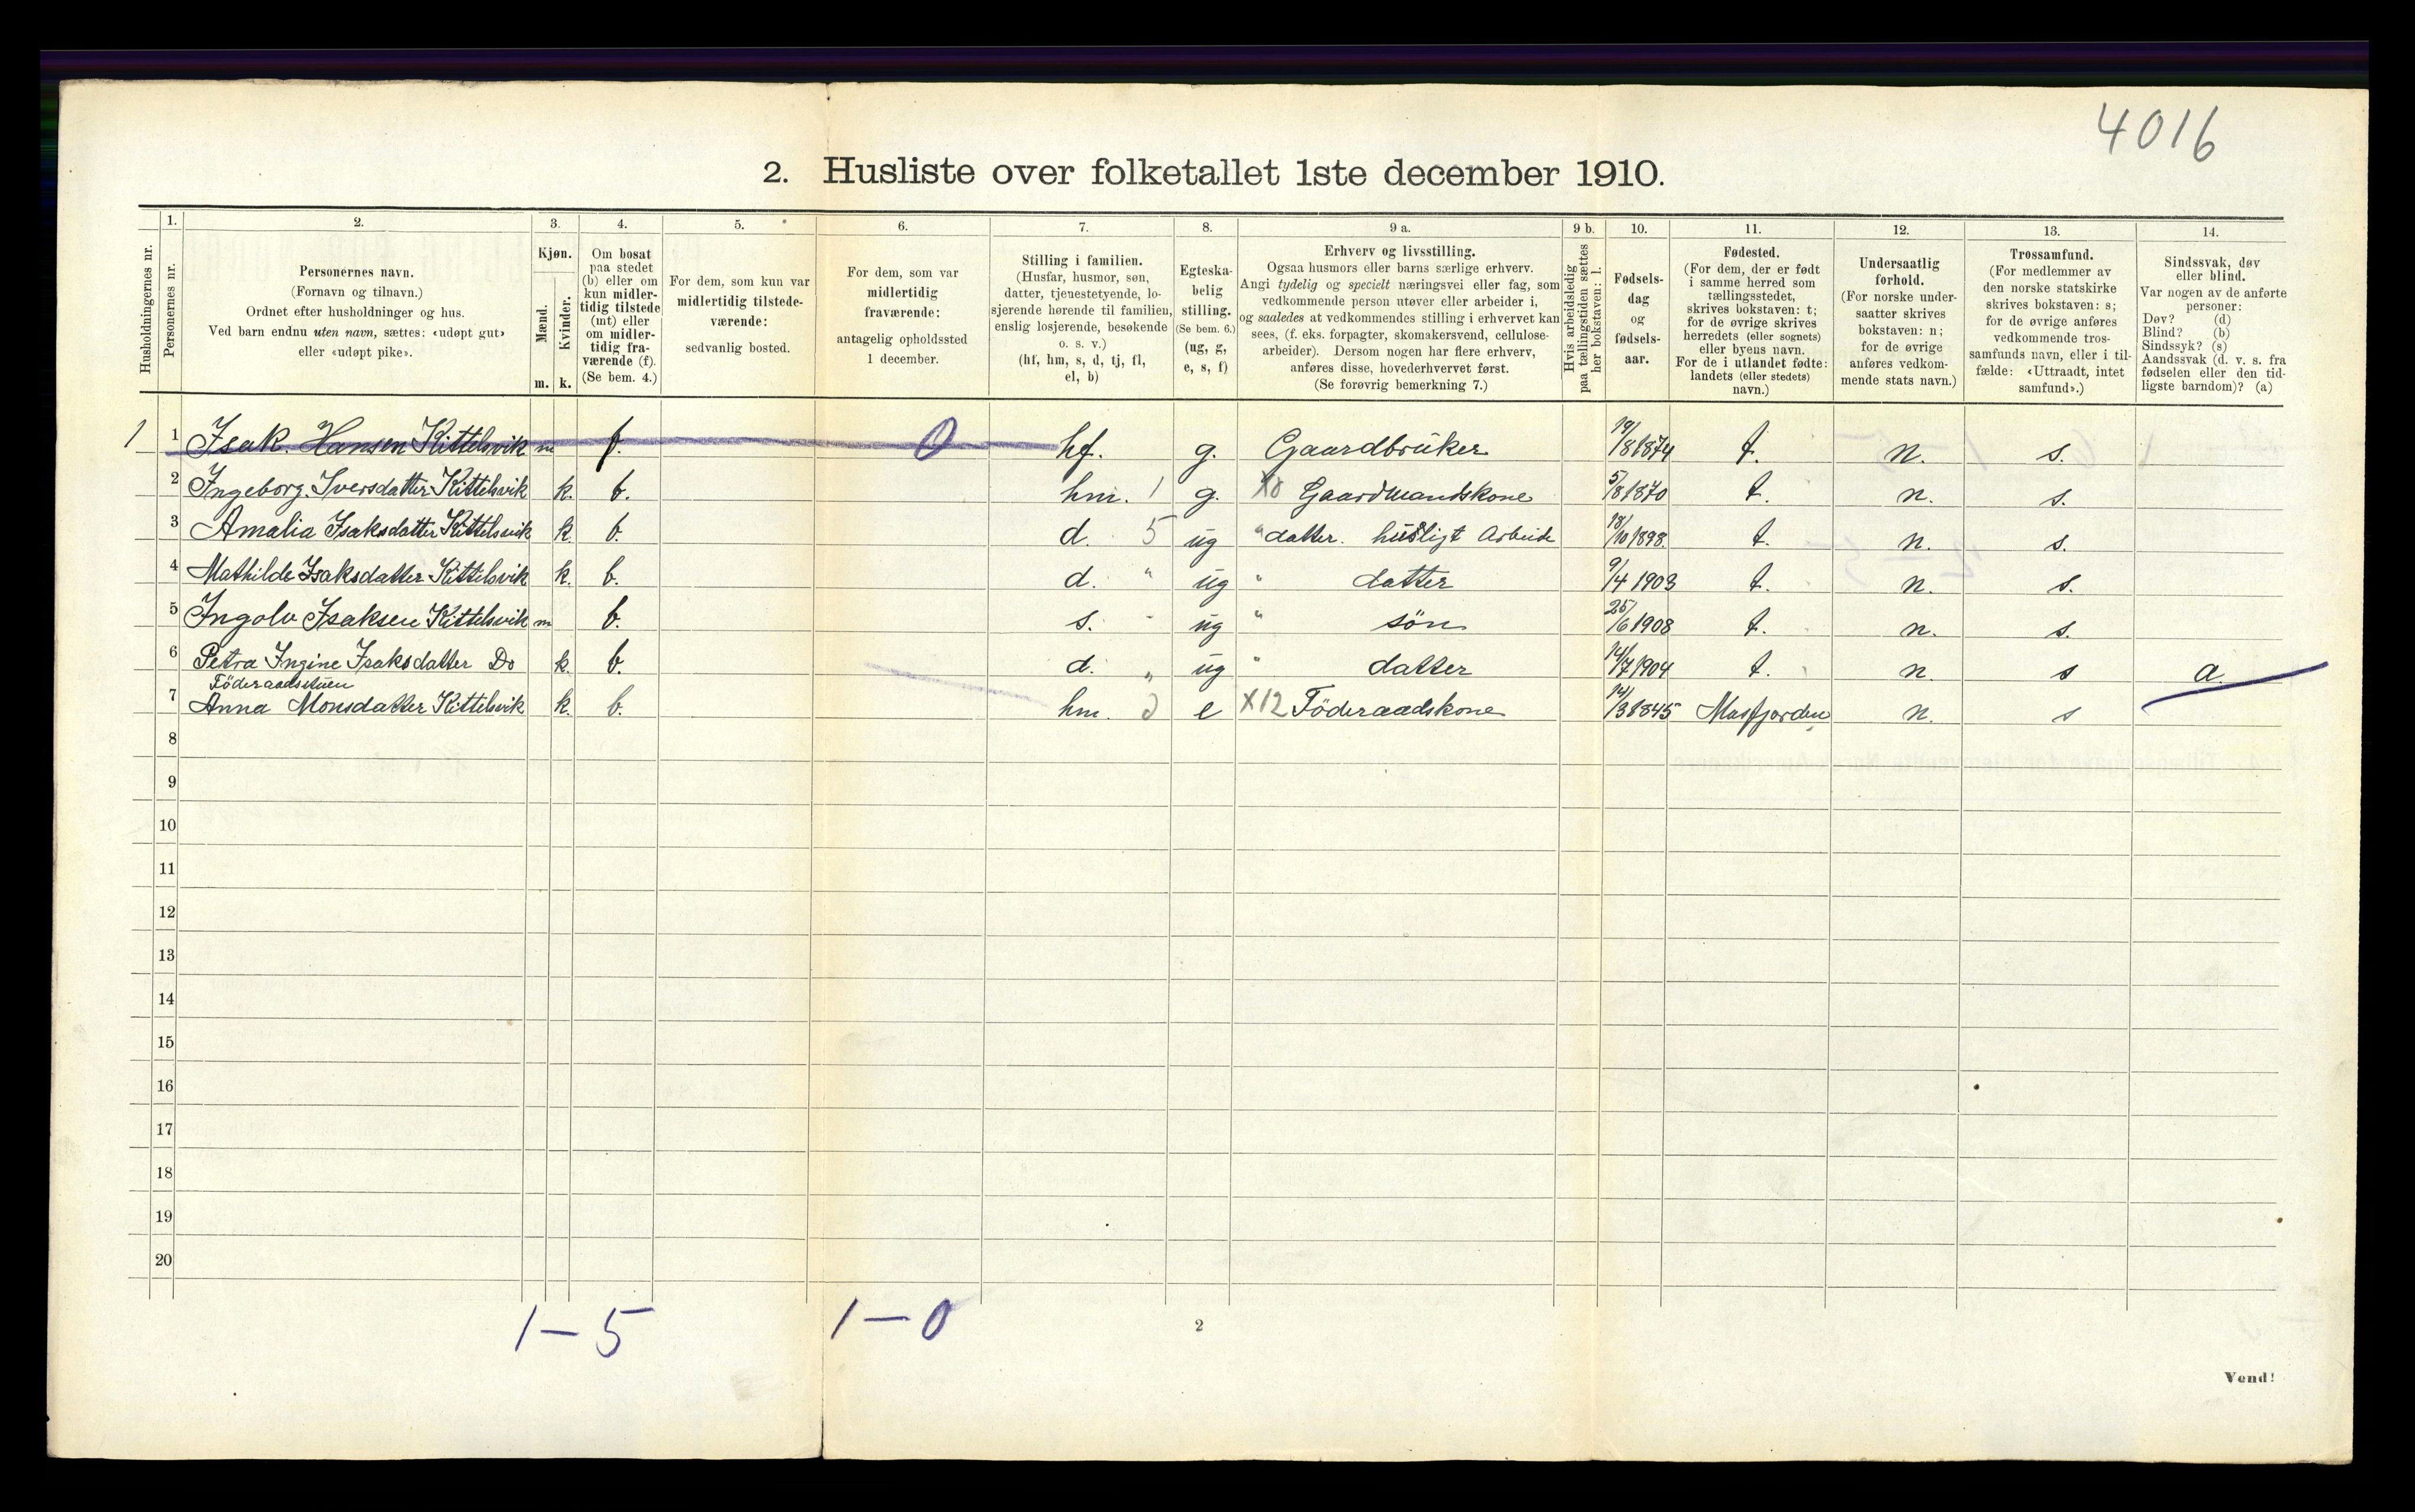 4016
2. Husliste over folketallet 1ste december 1910.
Husholdningernes nr.
1.
Personernes nr.
2.
Personernes navn.
(Fornavn og tilnavn.)
Ordnet efter husholdninger og hus.
Ved barn endnu uten navn, sættes: «udøpt gut»
eller «udøpt pike».
3.
Kjøn.
Mænd.
Kvinder.
m. k.
4.
Om bosat
paa stedet
(b) eller om
kun midler-
tidig tilstede
(mt) eller
om midler-
tidig fra-
værende (f).
(Se bem. 4.)
5.
For dem, som kun var
midlertidig tilstede-
værende:
sedvanlig bosted.
6.
For dem, som var
midlertidig
fraværende:
antagelig opholdssted
1 december.
7.
Stilling i familien.
(Husfar, husmor, søn,
datter, tjenestetyende, lo-
sjerende hørende til familien,
enslig losjerende, besøkende
o. s. v.)
(hf, hm, s, d, tj, fl,
el, b)
8.
Egteska-
belig
stilling.
(Se bem. 6.)
(ug, g,
e, s, f)
9 a.
Erhverv og livsstilling.
Ogsaa husmors eller barns særlige erhverv.
Angi tydelig og specielt næringsvei eller fag, som
vedkommende person utøver eller arbeider i,
og saaledes at vedkommendes stilling i erhvervet kan
sees, (f. eks. forpagter, skomakersvend, cellulose-
arbeider). Dersom nogen har flere erhverv,
anføres disse, hovederhvervet først.
(Se forøvrig bemerkning 7.)
9 b.
Hvis arbeidsledig
paa tællingstiden sættes
her bokstaven: l.
10.
Fødsels-
dag
og
fødsels-
aar.
11.
Fødested.
(For dem, der er født
i samme herred som
tællingsstedet,
skrives bokstaven: t;
for de øvrige skrives
herredets (eller sognets)
eller byens navn.
For de i utlandet fødte:
landets (eller stedets)
navn.)
12.
Undersaatlig
forhold.
(For norske under-
saatter skrives
bokstaven: n;
for de øvrige
anføres vedkom-
mende stats navn.)
13.
Trossamfund.
(For medlemmer av
den norske statskirke
skrives bokstaven: s;
for de øvrige anføres
vedkommende tros-
samfunds navn, eller i til-
fælde: «Uttraadt, intet
samfund».)
14.
Sindssvak, døv
eller blind.
Var nogen av de anførte
personer:
Døv? (d)
Blind? (b)
Sindssyk? (s)
Aandssvak (d. v. s. fra
fødselen eller den tid-
ligste barndom)? (a)
1 1 Isak. Hansen Kittelsvik m f. 0 hf. g. Gaardbrüker 19/8 1874 t. n. s.
2 Ingeborg. Iversdatter Kittelsvik k. b. hm. 1 g. X0 Gaardmandskone 5/8 1870 t. n. s.
3 Amalia Isaksdatter Kittelsvik k. b. d. 5 ug " datter. hüsligt Arbeide 18/10 1898. t. n. s.
4 Mathilde Isaksdatter Kittelsvik k. b. d. " ug " datter 9/4 1903 t. n. s.
5 Ingolv Isaksen Kittelsvik m b. s. " ug " søn 25/6 1908 t. n. s.
6 Petra Ingine Isaksdatter Do k. b. d. " ug " datter 14/7 1904 t. n. s a.
Föderaadsstüen
7 Anna Monsdatter Kittelsvik k. b. hm. e X12 Föderaadskone 14/3 1845 Masfjorden n. s
8
9
10
11
12
13
14
15
16
17
18
19
20
1 – 5 1 – 0
2
Vend!